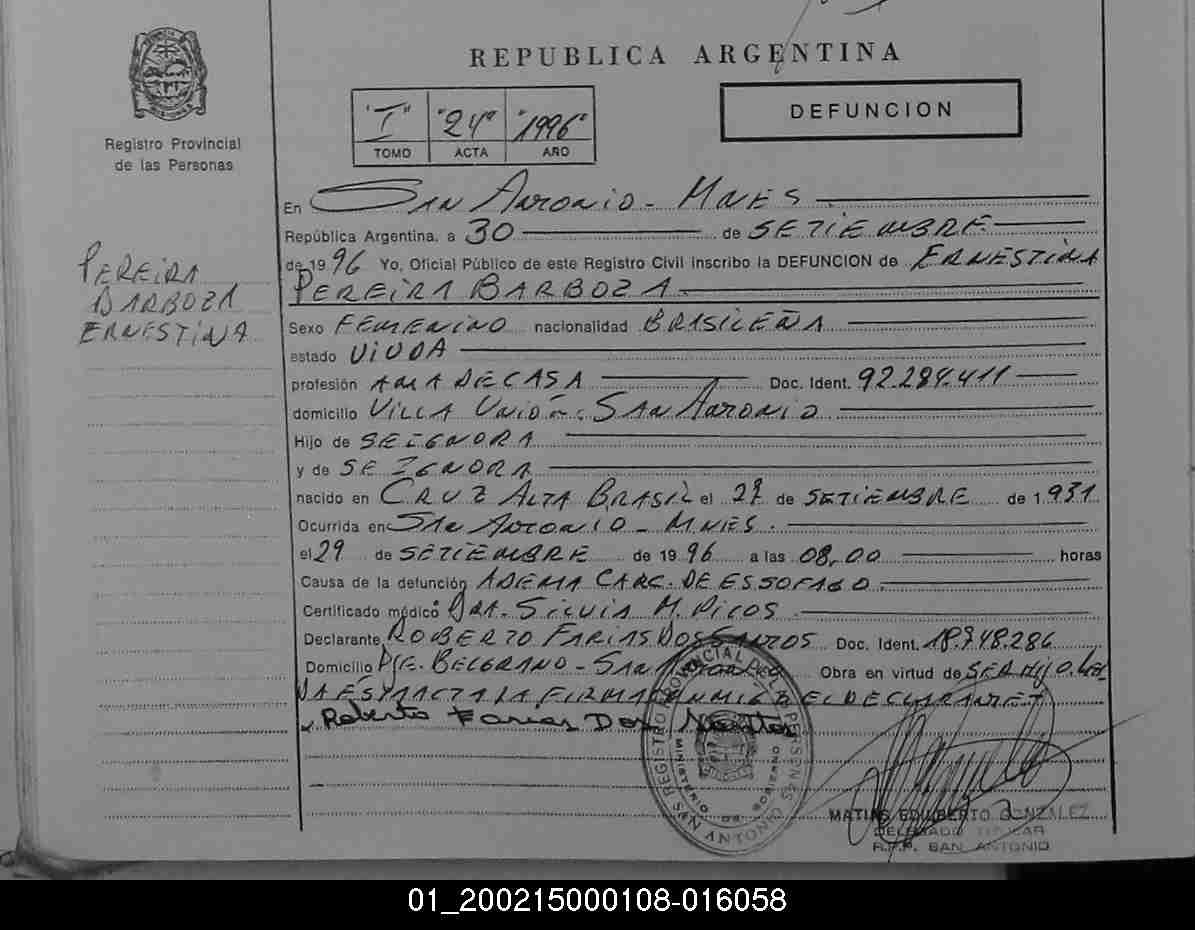 REPUBLICA ARGENTINA
DEFUNCION
Registro Provincial
de las Personas
"I" "24" "1996"
TOMO ACTA AÑO
PEREIRA
BARBOZA
ERNESTINA
En SAN ANTONIO - MNES
República Argentina, a 30 de SETIEMBRE
de 1996 Yo, Oficial Público de este Registro Civil inscribo la DEFUNCION de ERNESTINA
PEREIRA BARBOZA
Sexo FEMENINO nacionalidad BRASILEÑA
estado VIUDA
profesión AMA DE CASA Doc. Ident. 92.284.411
domicilio VILLA UNIÓN. SAN ANTONIO
Hijo de SE IGNORA
y de SE IGNORA
nacido en CRUZ ALTA BRASIL el 29 de SETIEMBRE de 1.931
Ocurrida en SAN ANTONIO - MNES.
el 29 de SETIEMBRE de 1996 a las 08,00 horas
Causa de la defunción CARC. DE ESSOFAGO
Certificado médico DRA. SILVIA M. PICOS
Declarante ROBERTO FARIAS DOS SANTOS Doc. Ident. 18.948.286
Domicilio PJE. BELGRANO - SAN ANTONIO Obra en virtud de SER HIJO. LEI
DA ESTA ACTA LA FIRMA CONMIGO EL DECLARANTE
Roberto Farias Dos Santos
REGISTRO PROVINCIAL DE LAS PERSONAS
MINISTERIO DE GOBIERNO
SAN ANTONIO
MATIAS EDILBERTO GONZALEZ
DELEGADO TITULAR
R.P.P. SAN ANTONIO
01_200215000108-016058